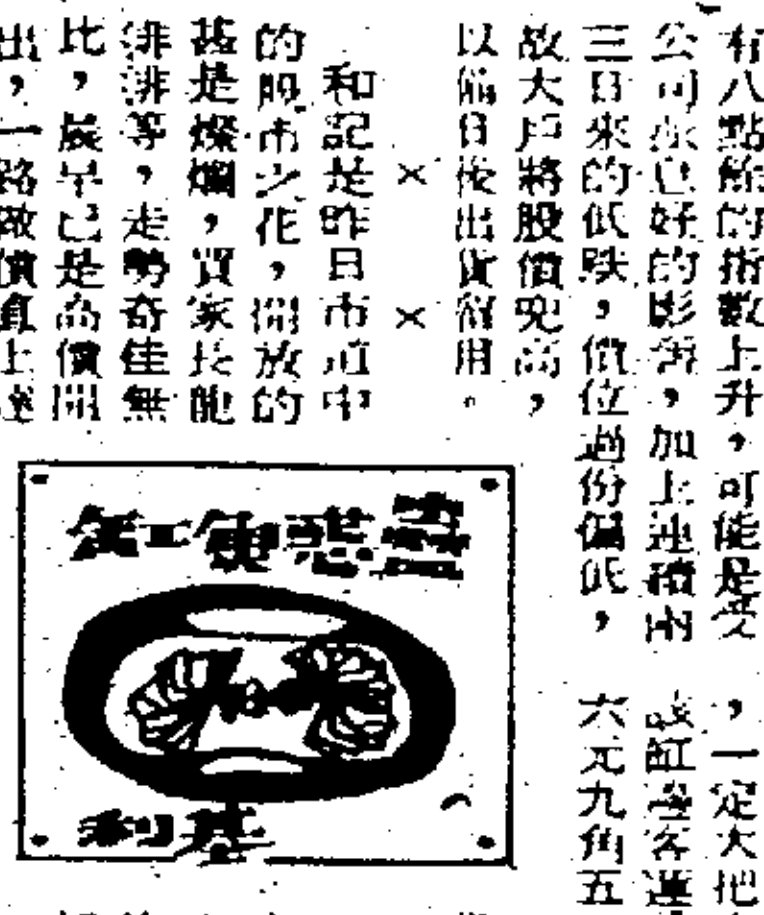 有八點餘的指數上升，可能是受
公司派息好的影響，加上連積兩
三日來的低跌，價位過份偏低，
故大戶將股價兜高，
以備日後出貨籌用。
××
和記是昨日市道中
的股市之花，開放的
甚是燦爛，買家長龍
排排等，走勢奇佳無
比，晨早已是高價開
出，一路做價直上達
，一定大把
缸邊客運
六元九角五
基利